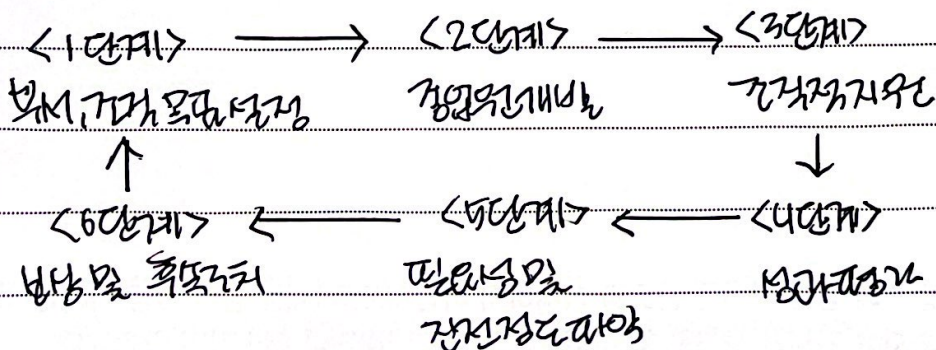 <1단계> → <2단계> → <3단계>
부서, 조직 목표 설정 종업원개발 조직적지원
↑ ↓
<6단계> ← <5단계> ← <4단계>
보상 및 후속조치 필요성 및 성과평가
진전정도파악